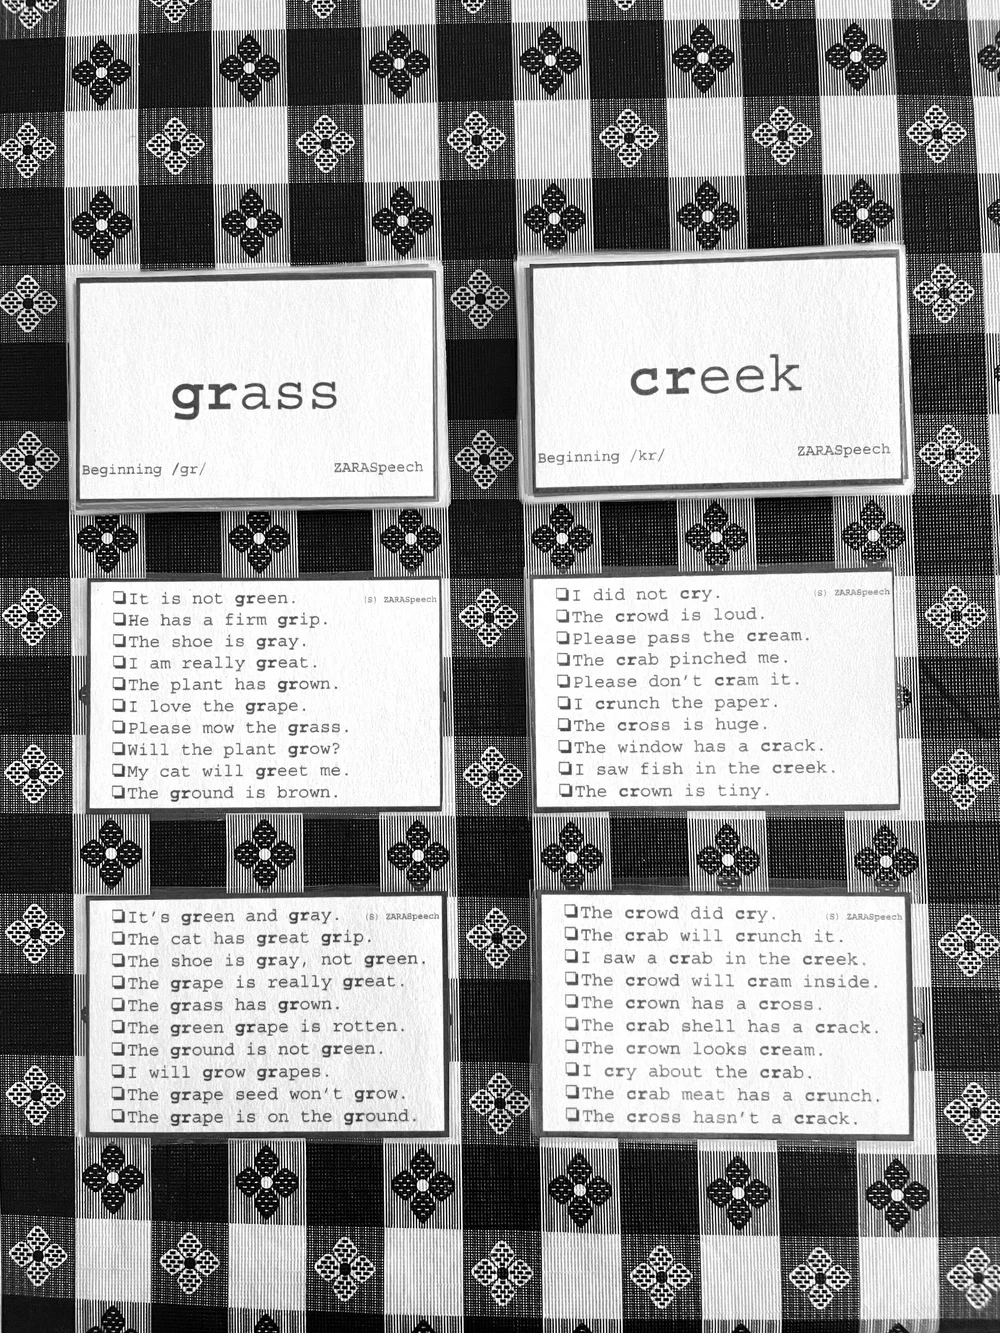 grass
Beginning /gr/ ZARASpeech
creek
Beginning /kr/ ZARASpeech
❏It is not green. (S) ZARASpeech
❏He has a firm grip.
❏The shoe is gray.
❏I am really great.
❏The plant has grown.
❏I love the grape.
❏Please mow the grass.
❏Will the plant grow?
❏My cat will greet me.
❏The ground is brown.
❏I did not cry. (S) ZARASpeech
❏The crowd is loud.
❏Please pass the cream.
❏The crab pinched me.
❏Please don't cram it.
❏I crunch the paper.
❏The cross is huge.
❏The window has a crack.
❏I saw fish in the creek.
❏The crown is tiny.
❏It's green and gray. (S) ZARASpeech
❏The cat has great grip.
❏The shoe is gray, not green.
❏The grape is really great.
❏The grass has grown.
❏The green grape is rotten.
❏The ground is not green.
❏I will grow grapes.
❏The grape seed won't grow.
❏The grape is on the ground.
❏The crowd did cry. (S) ZARASpeech
❏The crab will crunch it.
❏I saw a crab in the creek.
❏The crowd will cram inside.
❏The crown has a cross.
❏The crab shell has a crack.
❏The crown looks cream.
❏I cry about the crab.
❏The crab meat has a crunch.
❏The cross hasn't a crack.